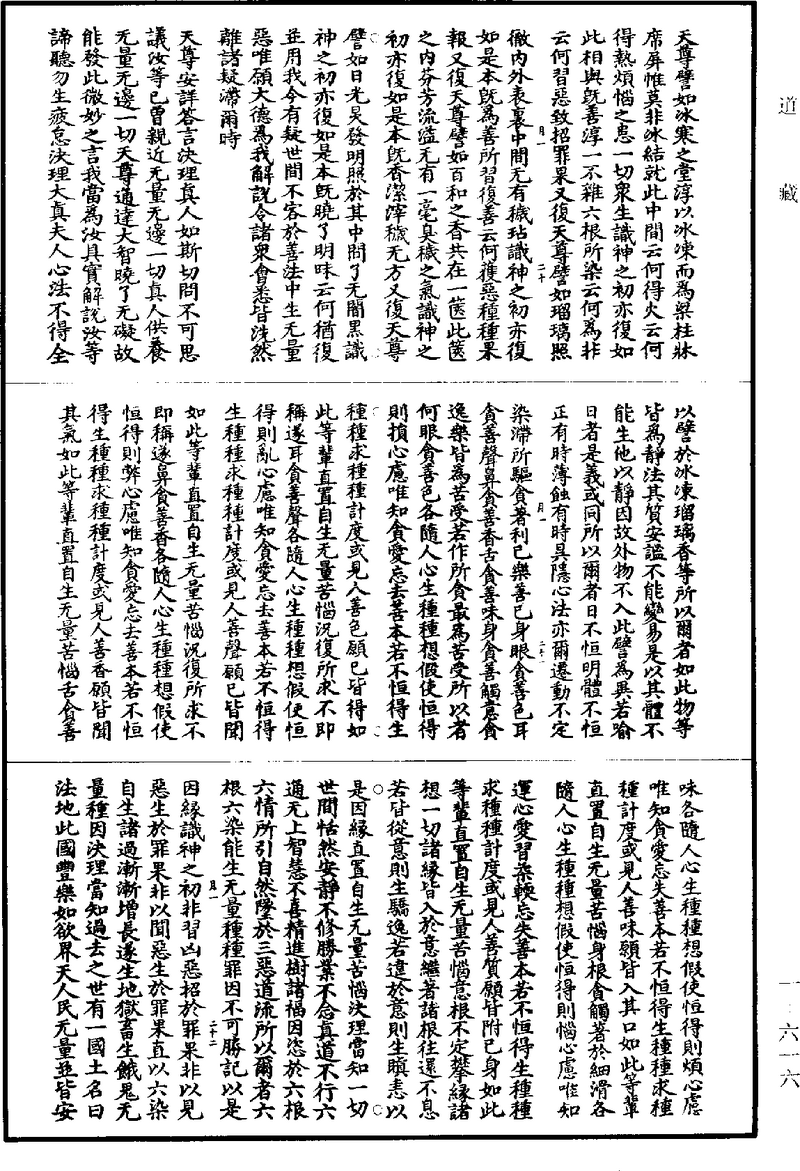 道藏
一・六一六
天尊譬如冰寒之堂淳以冰凍而為梁柱牀
席屏帷莫非冰結就此中間云何得火云何
得熱煩惱之患一切衆生識神之初亦復如
此相與旣善淳一不雜六根所染云何為非
云何習惡致招罪果又復天尊譬如瑠璃照
徹內外表裏中間无有穢玷識神之初亦復
如是本旣為善所習復善云何獲惡種種果
報又復天尊譬如百和之香共在一篋此篋
之內芬芳流溢无有一毫臭穢之氣識神之
初亦復如是本旣香潔滓穢无方又復天尊
譬如日光炅發明照於其中間了无闇黑識
神之初亦復如是本旣曉了明昧云何猶復
並用我今有疑世間不容於善法中生无量
惡唯願大德為我解說令諸衆會悉皆洗然
離諸疑滯爾時
天尊安詳答言決理真人如斯切問不可思
議汝等已曾親近无量无邊一切真人供養
无量无邊一切天尊通達大智曉了无礙故
能發此微妙之言我當為汝具實解說汝等
諦聽勿生疲怠決理大真夫人心法不得全
以譬於冰凍瑠璃香等所以爾者如此物等
皆為靜法其質安謐不能變易是以其體不
能生他以靜因故外物不入此譬為異若喻
日者是義或同所以爾者日不恒明體不恒
正有時薄蝕有時具隱心法亦爾遷動不定
染滯所驅貪著利己樂善已身眼貪善色耳
貪善聲鼻貪善香舌貪善味身貪善觸意貪
逸樂皆為苦受若作所貪最為苦受所以者
何眼貪善色各隨人心生種種想假使恒得
則損心慮唯知貪愛忘去善本若不恒得生
種種求種種計度或見人善色願已皆得如
此等輩直置自生无量苦惱況復所求不即
稱遂耳貪善聲各隨人心生種種想假使恒
得則亂心慮唯知貪愛忘去善本若不恒得
生種種求種種計度或見人善聲願已皆聞
如此等輩直置自生无量苦惱況復所求不
即稱遂鼻貪善香各隨人心生種種想假使
恒得則弊心慮唯知貪愛忘去善本若不恒
得生種種求種種計度或見人善香願皆聞
其氣如此等輩直置自生无量苦惱舌貪善
味各隨人心生種種想假使恒得則煩心慮
唯知貪愛忘失善本若不恒得生種種求種
種計度或見人善味願皆入其口如此等輩
直置自生无量苦惱身根貪觸著於細滑各
隨人心生種種想假使恒得則惱心慮唯知
運心愛習染輭忘失善本若不恒得生種種
求種種計度或見人善質願皆附已身如此
等輩直置自生无量苦惱意根不定攀緣諸
想一切諸緣皆入於意繼著諸根往還不息
若皆從意則生驕逸若違於意則生瞋恚以
是因緣直置自生无量苦惱決理當知一切
世間恬然安靜不修勝業不念真道不行六
通无上智慧不喜精進樹諸福因恣於六根
六情所引自然墜於三惡道流所以爾者六
根六染能生无量種種罪因不可勝記以是
因緣識神之初非習凶惡招於罪果非以見
惡生於罪果非以聞惡生於罪果直以六染
自生諸過漸漸增長遂生地獄畜生餓鬼无
量種因決理當知過去之世有一國土名曰
法地此國豐樂如欲界天人民无量並皆安